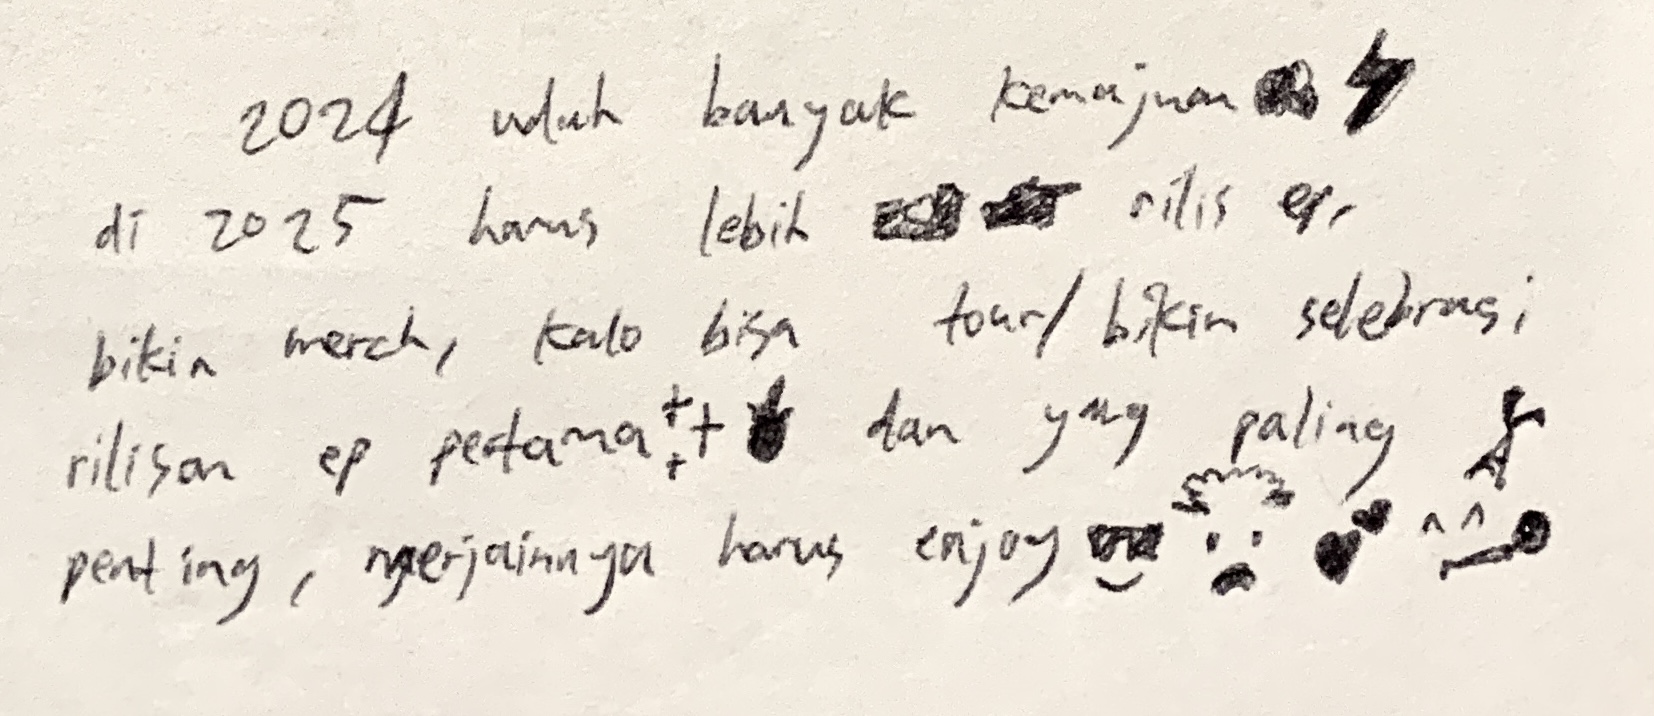 2024 udah banyak kemajuan
di 2025 harus lebih rilis ep,
bikin merch, kalo bisa tour/bikin selebrasi
rilisan ep pertama dan yang paling
penting, ngerjainnya harus enjoy